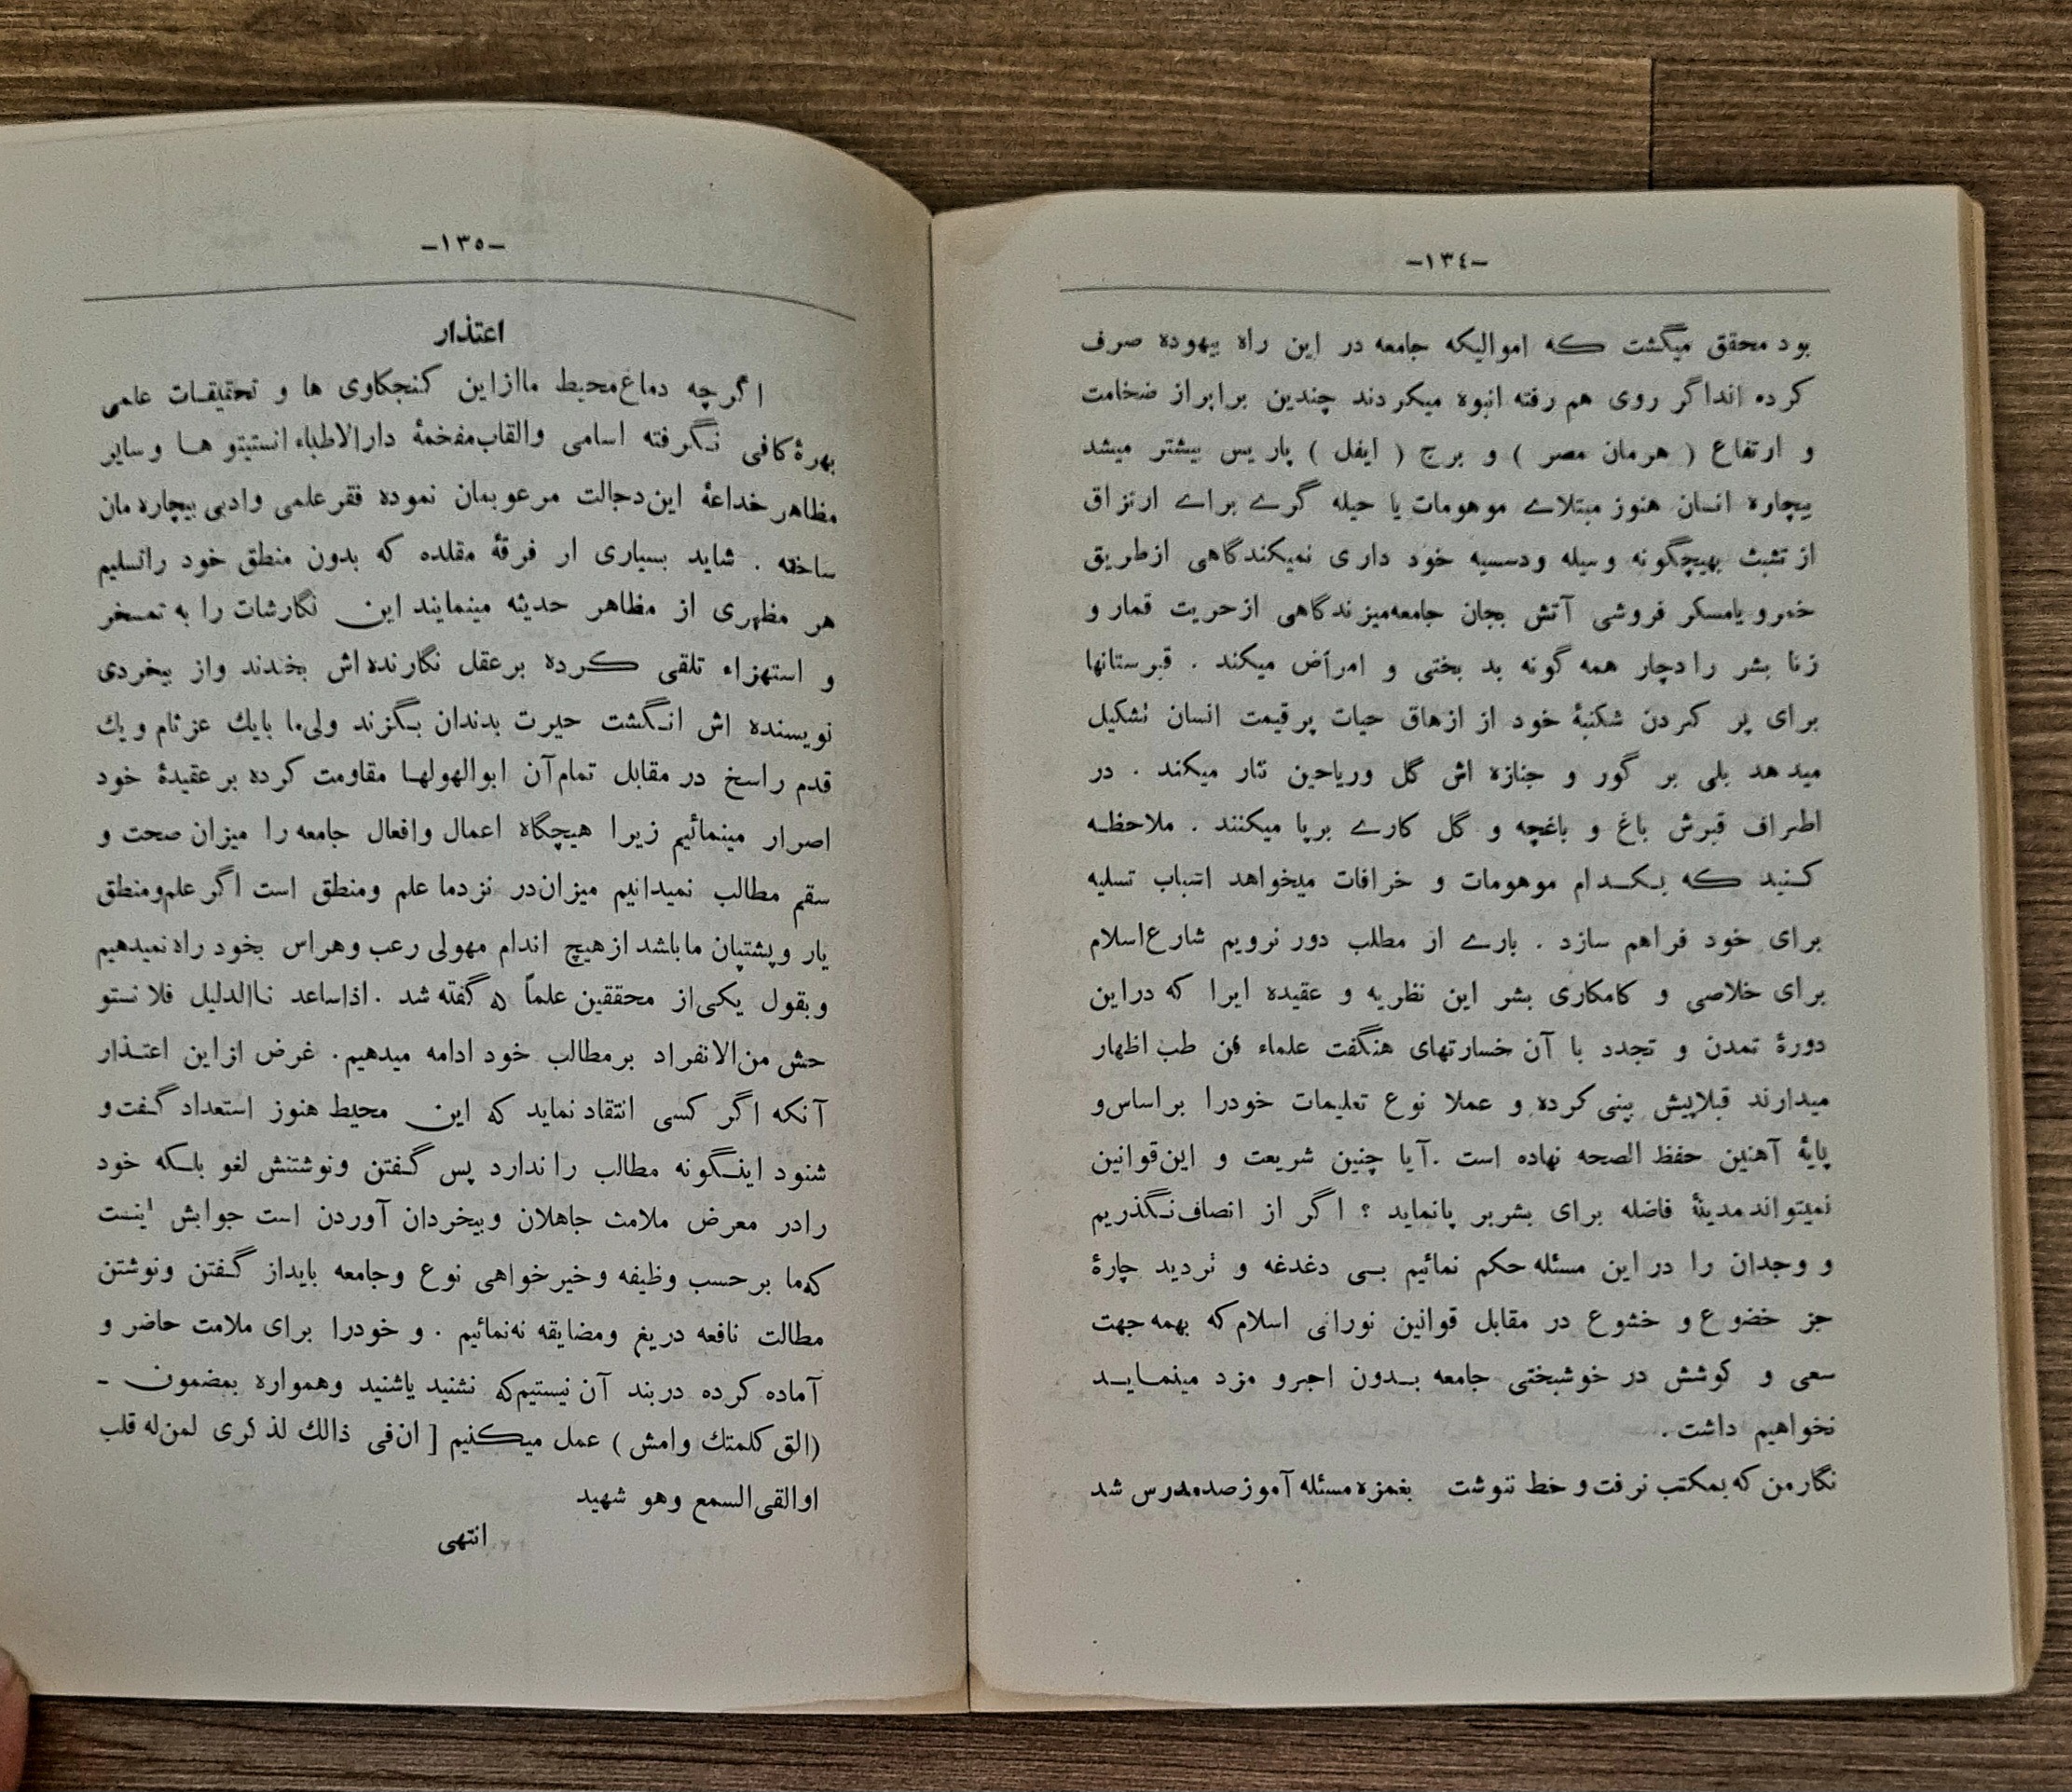 -١٣٤-
بود محقق میگشت که اموالیکه جامعه در این راه بیهوده صرف
کرده انداگر روی هم رفته انبوه میکردند چندین برابراز ضخامت
و ارتفاع ( هرمان مصر ) و برج ( ایفل ) پاریس بیشتر میشد
بیچاره انسان هنوز مبتلاے موهومات یا حیله گرے براے ارتزاق
از تشبث بهیچگونه وسیله ودسیسه خود داری نمیکندگاهی ازطریق
خمرو یامسکر فروشی آتش بجان جامعه‌میزندگاهی ازحریت قمار و
زنا بشر رادچار همه گونه بد بختی و امراض میکند . قبرستانها
برای پر کردن شکنبهٔ خود از ازهاق حیات پرقیمت انسان تشکیل
میدهد بلی بر گور و جنازه اش گل وریاحین نثار میکند . در
اطراف قبرش باغ و باغچه و گل کارے برپا میکنند . ملاحظه
کنید که بکدام موهومات و خرافات میخواهد اسباب تسلیه
برای خود فراهم سازد . بارے از مطلب دور نرویم شارع‌اسلام
برای خلاصی و کامکاری بشر این نظریه و عقیده ایرا که دراین
دورهٔ تمدن و تجدد با آن خسارتهای هنگفت علماء فن طب اظهار
میدارند قبلاپیش بینی کرده و عملا نوع تعلیمات خودرا براساس‌و
پایهٔ آهنین حفظ الصحه نهاده است .آیا چنین شریعت و این‌قوانین
نمیتواندمدینهٔ فاضله برای بشربر پانماید ؟ اگر از انصاف‌نگذریم
و وجدان را دراین مسئله حکم نمائیم بی دغدغه و تردید چارهٔ
جز خضوع و خشوع در مقابل قوانین نورانی اسلام‌که بهمه‌جهت
سعی و کوشش در خوشبختی جامعه بدون اجرو مزد مینماید
نخواهیم داشت .
نگارمن که بمکتب نرفت و خط ننوشت بغمزه‌مسئله آموزصدمدرس شد
-١٣٥-
اعتذار
اگرچه دماغ‌محیط ماازاین کنجکاوی ها و تحقیقات علمی
بهرهٔ‌کافی نگرفته اسامی والقاب‌مفخمهٔ دارالاطباء انستیتو ها وسایر
مظاهر خداعهٔ این‌دجالت مرعوبمان نموده فقرعلمی وادبی بیچاره مان
ساخته . شاید بسیاری ار فرقهٔ مقلده که بدون منطق خود راتسلیم
هر مظهری از مظاهر حدیثه مینمایند این نگارشات را به تمسخر
و استهزاء تلقی کرده برعقل نگارنده‌اش بخندند واز بیخردی
نویسنده اش انگشت حیرت بدندان بگزند ولی‌ما بایك عزم‌تام و یك
قدم راسخ در مقابل تمام‌آن ابوالهولها مقاومت کرده بر عقیدهٔ خود
اصرار مینمائیم زیرا هیچگاه اعمال وافعال جامعه را میزان صحت و
سقم مطالب نمیدانیم میزان‌در نزدما علم ومنطق است اگر علم‌ومنطق
یار وپشتپان ماباشد ازهیچ اندام مهولی رعب وهراس بخود راه‌نمیدهیم
وبقول یکی‌از محققین علماً که گفته شد .اذاساعد ناالدلیل فلا نستو
حش من‌الانفراد برمطالب خود ادامه میدهیم. غرض ازاین اعتذار
آنکه اگر کسی انتقاد نماید که این محیط هنوز استعداد گفت‌و
شنود اینگونه مطالب را ندارد پس گفتن ونوشتنش لغو بلکه خود
رادر معرض ملامت جاهلان وبیخردان آوردن است جوابش اینست
که‌ما برحسب وظیفه وخیرخواهی نوع وجامعه بایداز گفتن ونوشتن
مطالت نافعه دریغ ومضایقه نه‌نمائیم . و خودرا برای ملامت حاضر و
آماده کرده دربند آن نیستیم‌که نشنید یاشنید وهمواره بمضمون -
(الق کلمتك وامش) عمل میکنیم [ ان‌فی ذالك لذکری لمن‌له قلب
اوالقی‌السمع وهو شهید
انتهی